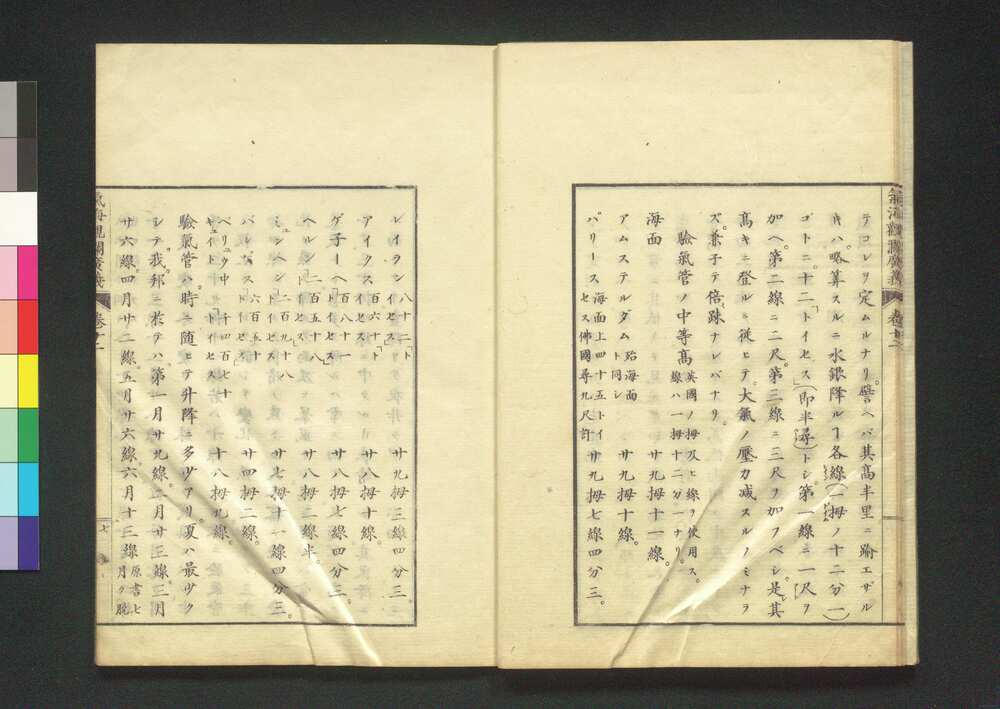 テコレヲ定ムルナリ。譬ヘバ其高半里ニ踰エザル
キハ略算スルニ水銀降ルヿ各線(一拇ノ十二分一)
ゴトニ。十二「トイセス」(即半潯)トシ。第一線ニ一尺ヲ
加ヘ。第二線ニ二尺。第三線ニ三尺ヲ加フベシ。是其
高キニ登ルニ従ヒテ大氣ノ壓力減スルノミナラ
ズ。兼子テ倍踈ナレバナリ。
驗氣管ノ中等高 英國ノ拇及ヒ線ヲ使用ス。線ハ一拇十二分一ナリ。
海面 廿九拇十一線。
アムステルダム 殆海面ト同シ 廿九拇十線。
パリース 海面上四十五トイセス佛國尋九尺許 廿九拇七線四分三。
氣海觀瀾廣義 卷十二
レイラン 八十二「トイセス」 廿九拇三線四分三。
アイクス 百六十「トイセス」 廿八拇十線。
ゲ子ーヘ 百八十一「トイセス」 廿八拇七線四分三。
ヘルン 二百五十八「トイセス」 廿八拇二線半。
ミュンヘン 二百九十八「トイセス」 廿七拇十一線四分三。
バレルス 六百五十「トイセス」 廿四拇二線。
ベリュク中 千四百七十「トイセス」 十八拇九線。
驗氣管ハ。時ニ随ヒテ升降ニ多少アリ。夏ハ最少ク
シテ。我邦ニ於テハ。第一月廿九線。二月廿三線。三月
廿六線。四月廿二線。五月廿六線。六月十三線 原書七月ヲ脱
氣海觀瀾廣義 卷十二 七